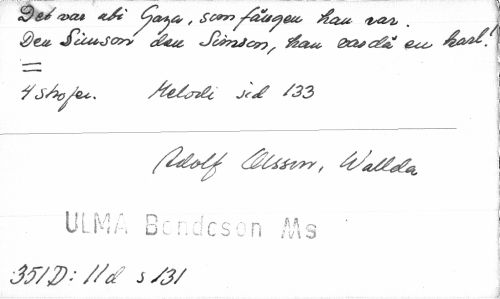 Det var uti Gaza, som fången han var.
Den Simson den Simson, han var då en karl!
=
4 strofer. Melodi sid 133
Adolf Olsson, Wallda
ULMA Bondeson Ms
351D: 11d s 131